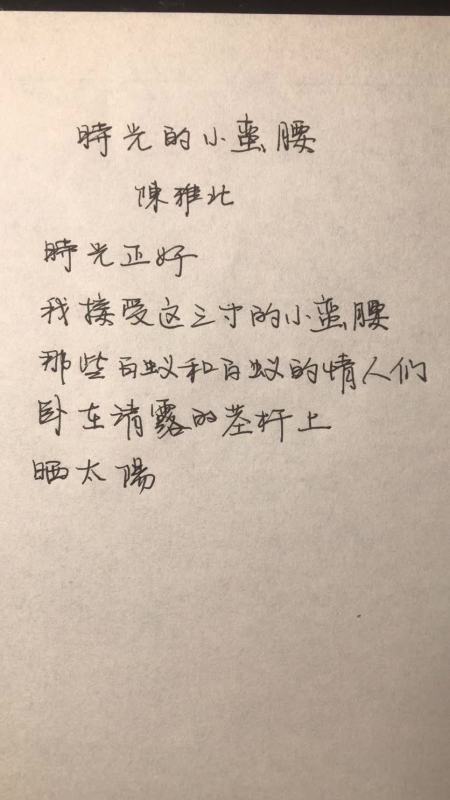 時光的小蛮腰
陳雅北
時光正好
我接受这三寸的小蛮腰
那些白蚁和白蚁的情人们
卧在清露的茎杆上
晒太陽